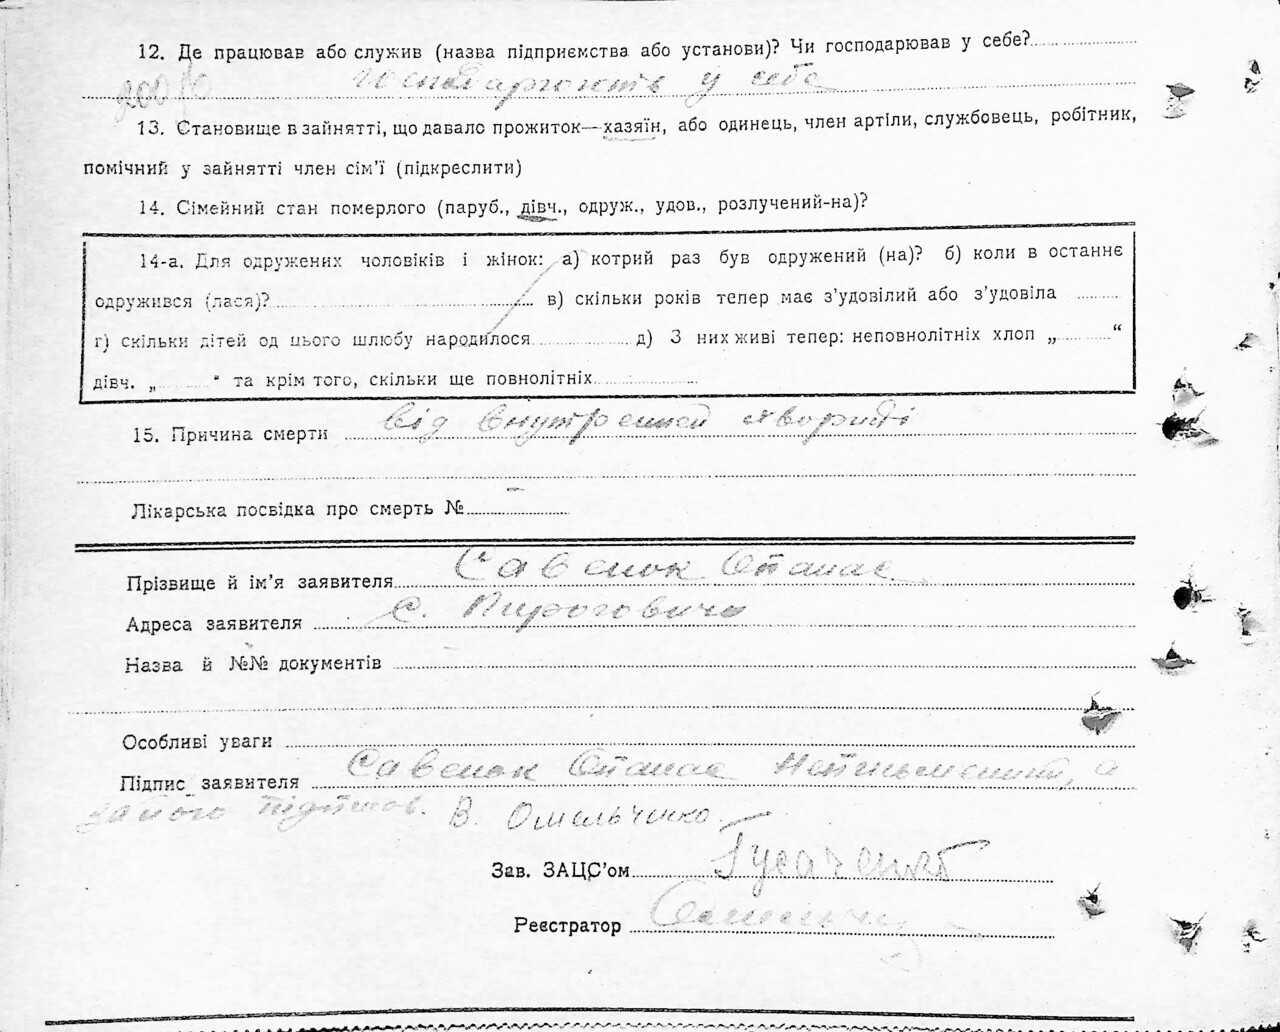 12. Де працював або служив (назва підприємства або установи)? Чи господарював у себе?
господарюють у себе
13. Становище в зайнятті, що давало прожиток—хазяїн, або одинець, член артіли, службовець, робітник,
помічний у зайнятті член сім’ї (підкреслити)
14. Сімейний стан померлого (паруб., дівч., одруж., удов., розлучений-на)?
14-а. Для одружених чоловіків і жінок: а) котрий раз був одружений (на)? б) коли в останнє
одружився (лася)? в) скільки років тепер має з’удовілий або з’удовіла
г) скільки дітей од цього шлюбу народилося д) З них живі тепер: неповнолітніх хлоп „ “
дівч. „ “ та крім того, скільки ще повнолітніх
15. Причина смерти від внутренней хвориті
Лікарська посвідка про смерть № –
Прізвище й ім’я заявителя Савенок Опанас
Адреса заявителя с. Пироговичі
Назва й №№ документів
Особливі уваги
Підпис заявителя Савенок Опанас Неписьменний, а
за його підписов. В. Омельченко
Зав. ЗАЦС’ом Гусаченко
Реєстратор